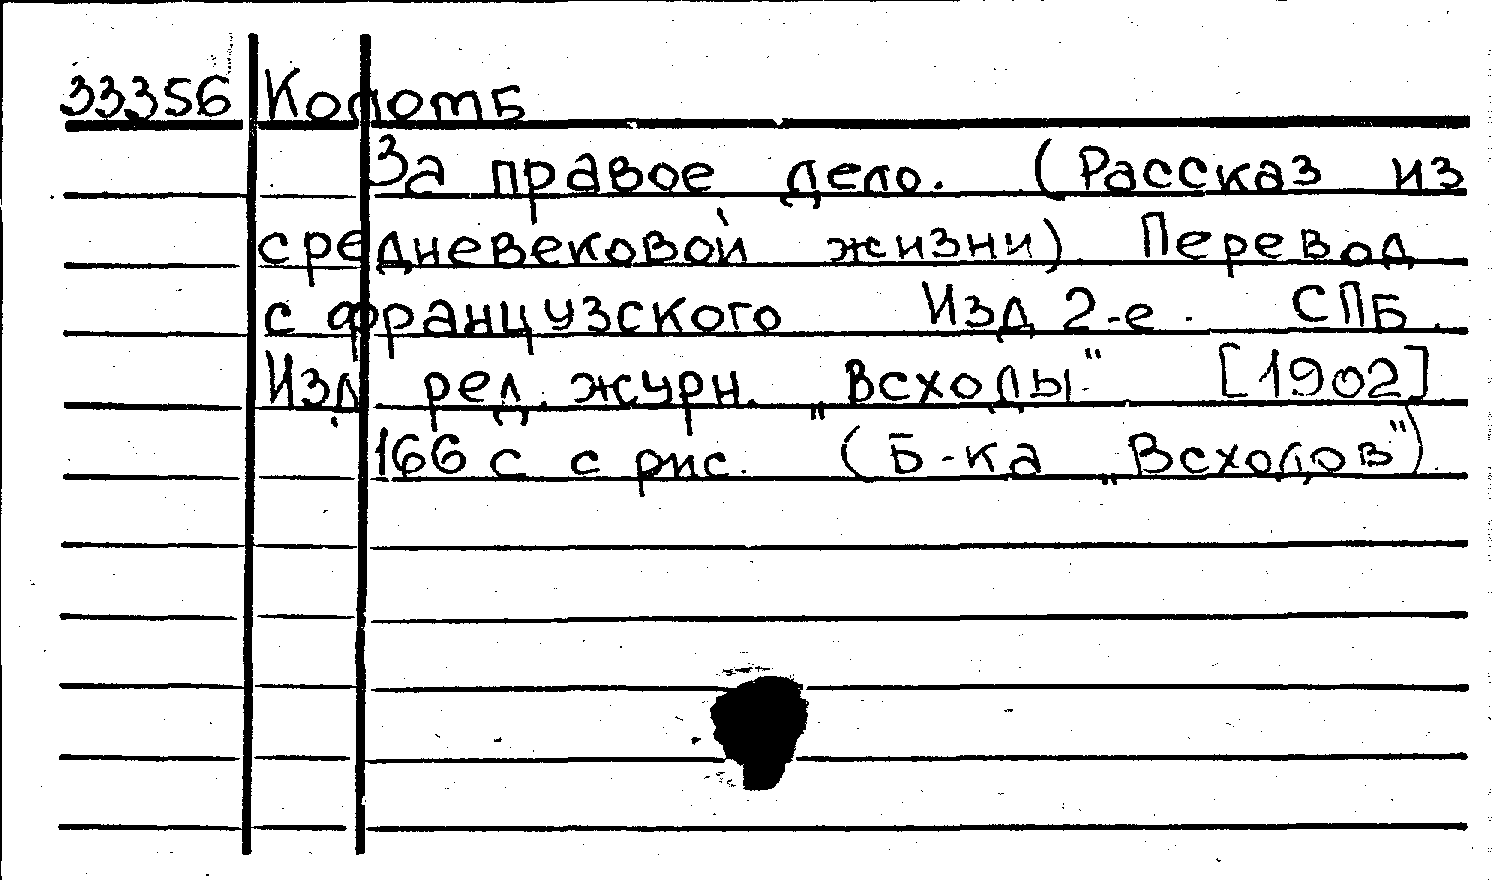 33356 Коломб
За правое дело. (Рассказ из
средневековой жизни) Перевод
с французского Изд 2-е. СПБ.
Изд. ред. журн. „Всходы" [1902]
166 с с рис. (Б-ка „Всходов")